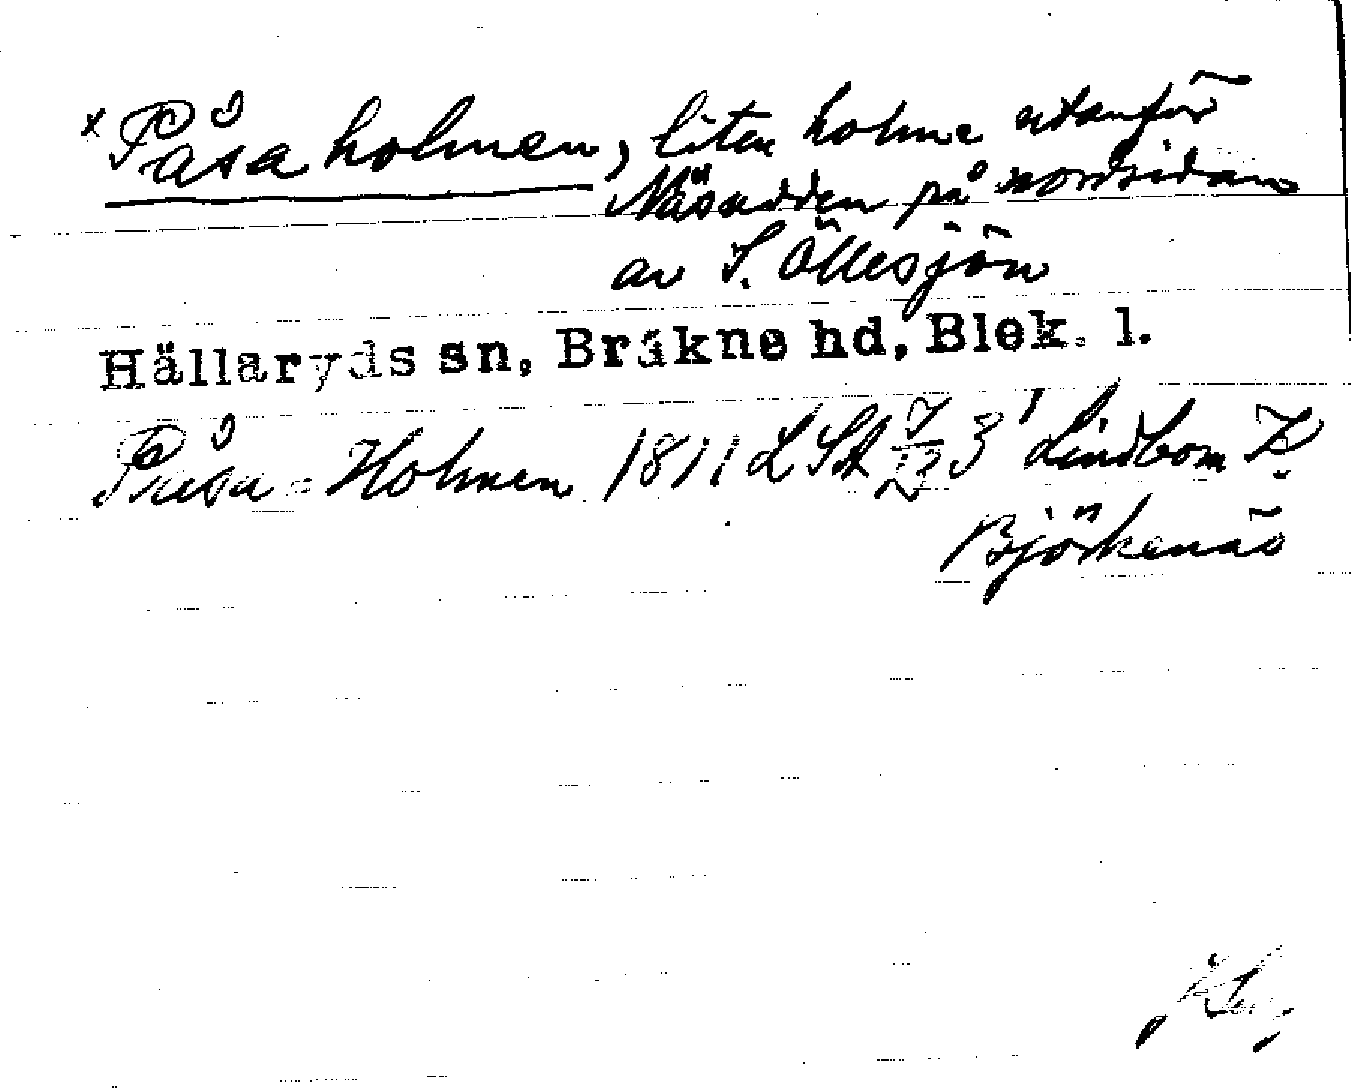 x Påsaholmen, liten holme utanför
Näsudden på nordsidan
av S. Öllesjön
Hällaryds sn, Bräkne hd, Blek. l.
Påsa-Holmen 1811 LSA 7/12 3' Lindbom K.
Björkenäs